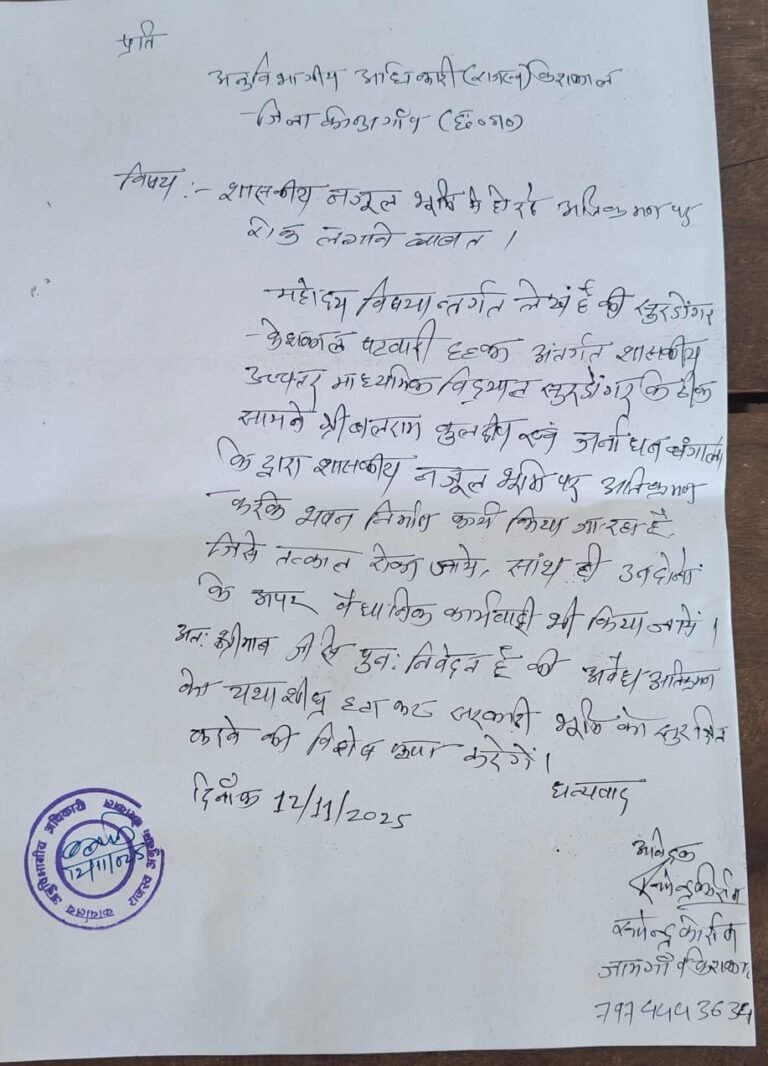 प्रति
अनुविभागीय अधिकारी (राजस्व) केशकाल
जिला कोण्डागाँव (छ०ग०)
विषय :- शासकीय नजूल भूमि मे हो रहे अतिक्रमण पर
रोक लगाने बाबत ।
महोदय विषयान्तर्गत लेख है की सुरडोंगर
केशकाल पटवारी हल्का अंतर्गत शासकीय
उच्चतर माध्यमिक विद्यालय सुरडोंगर के ठीक
सामने श्री बलराम कुलदीप एवं जर्नाधन बंगाली
के द्वारा शासकीय नजूल भूमि पर अतिक्रमण
करके भवन निर्माण कार्य किया जा रहा है,
जिसे तत्काल रोका जाये, सांथ ही उन दोनों
के उपर वैधानिक कार्यवाही भी किया जायें ।
अतः श्रीमान जी से पुनः निवेदन है की अवैध अतिक्रमण
को यथाशीघ्र हटा कर सरकारी भूमि को सुरक्षित
करने की विशेष कृपा करेगें ।
धन्यवाद
दिनाँक 12/11/2025
आवेदक
कार्यालय अनुविभागीय अधिकारी
12/11/025
जामगाँव केशकाल
7974443634